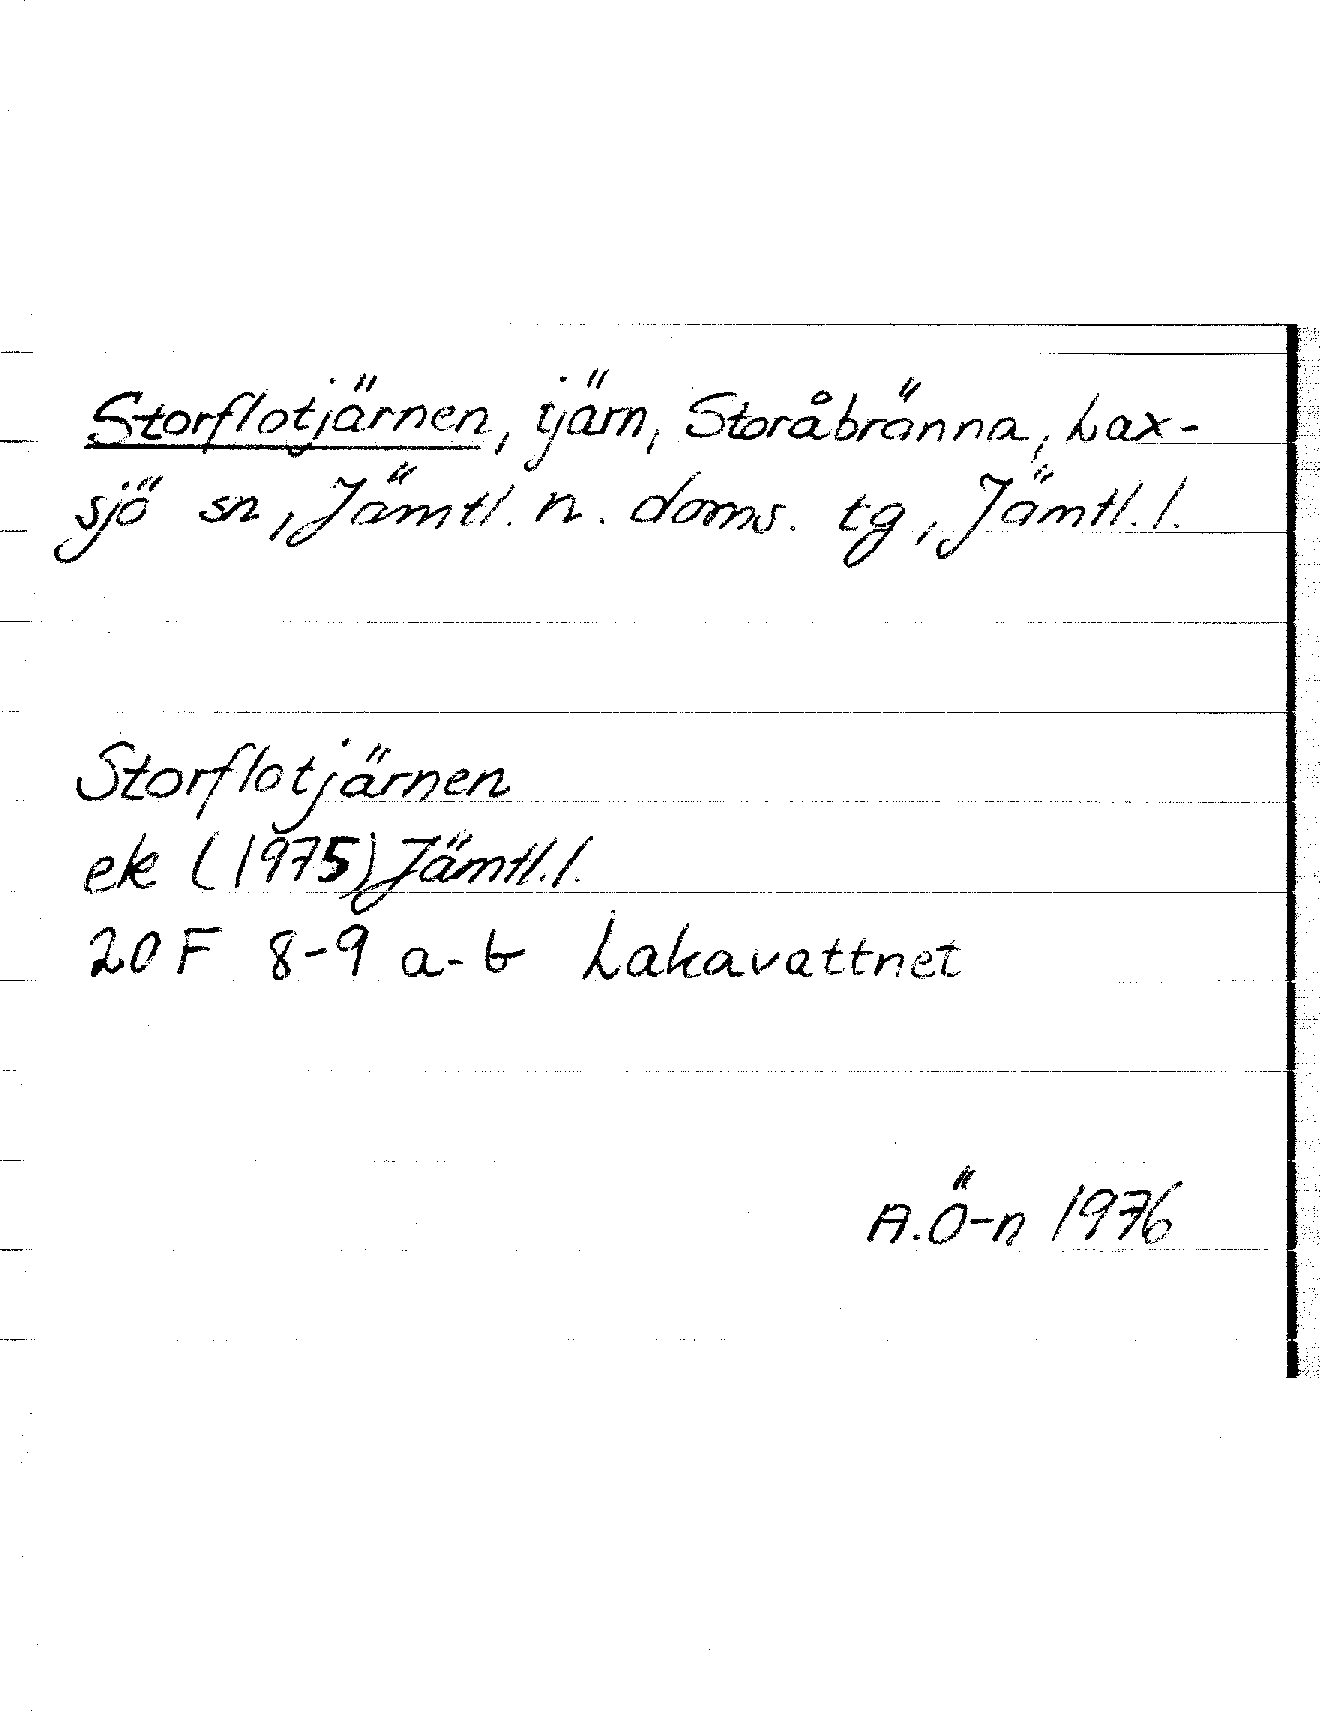 Storflotjärnen, tjärn, Storåbränna, Lax-
sjö sn, Jämtl. n. doms. tg, Jämtl. l.
Storflotjärnen
ek (1975) Jämtl. l.
20F 8-9 a-b Lakavattnet
A.Ö-n 1976